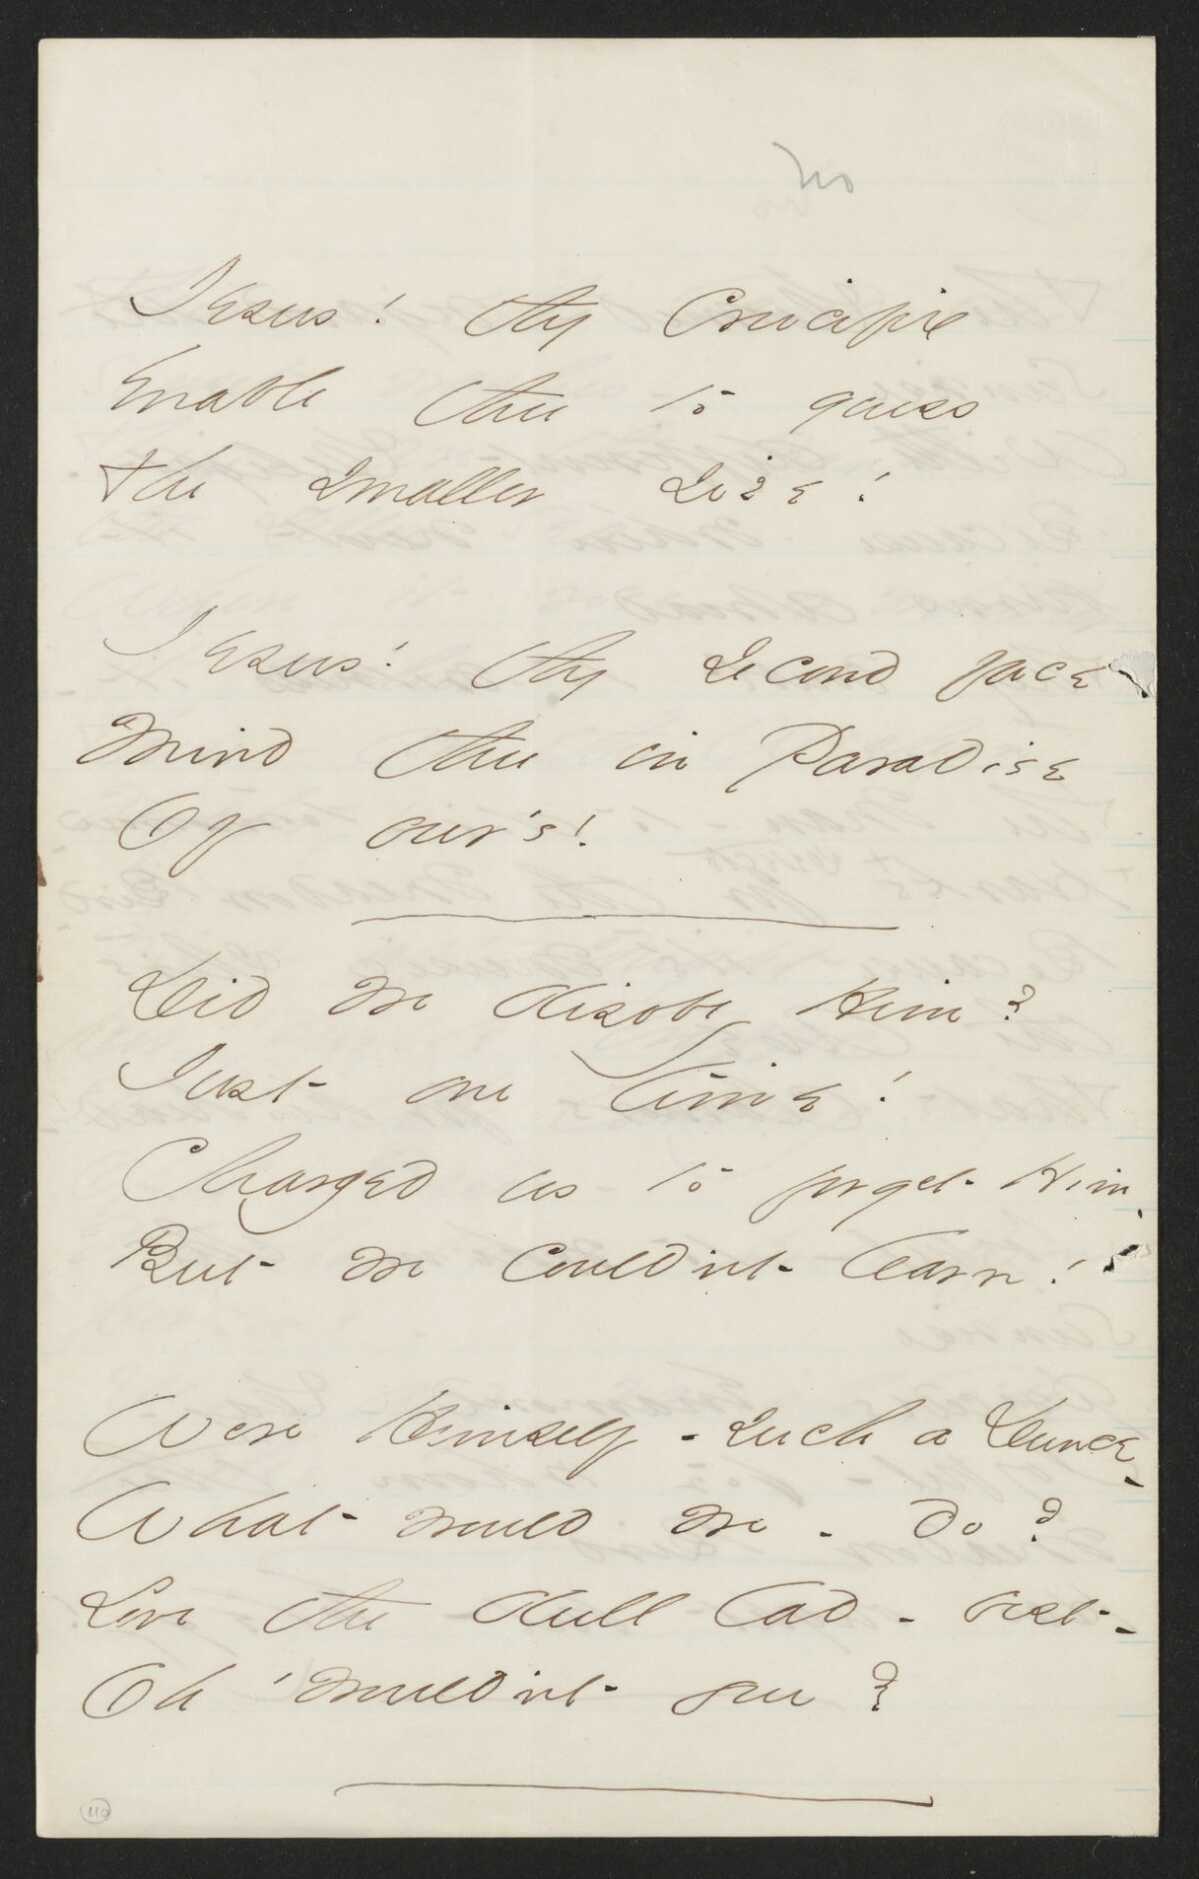 no
Jesus! thy Crucifix
Enable thee to guess
The smaller size!
Jesus! thy second face
Mind thee in Paradise
Of our's!
Did we disobey Him?
Just one time!
Charged us to forget Him -
But we couldn't learn!
Were Himself - such a Dunce -
What would we - do?
Love the dull lad - best -
Oh, wouldn't you?
110